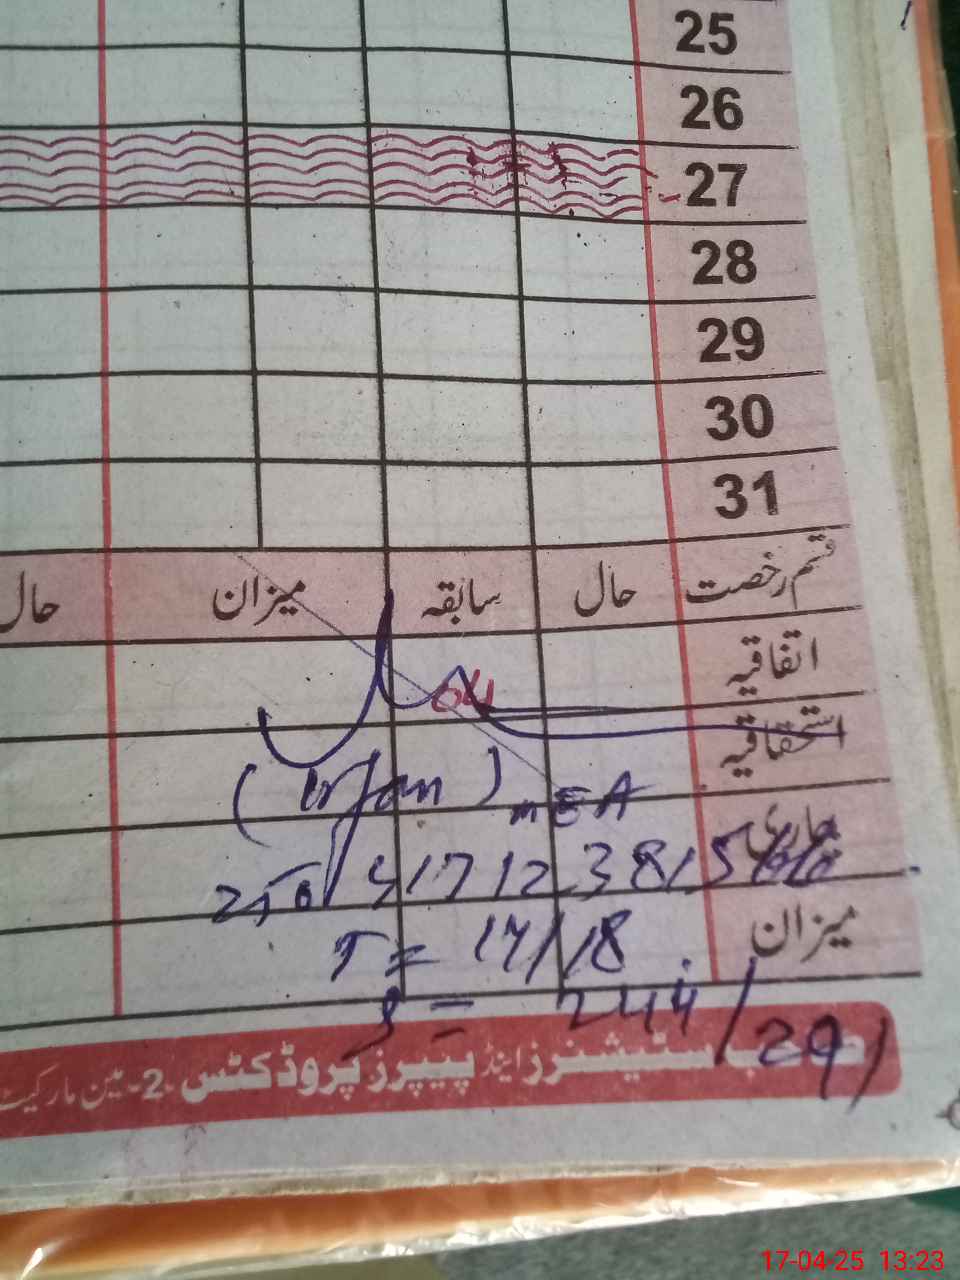 25
26
27
28
29
30
31
قسم رخصت حال سابقہ میزان حال
اتفاقیہ
04
استحقاقیہ
(Irfan) MEA
بیماری
میزان
T = 17/18
S = 244/291
سٹیشنرز اینڈ پیپرز پروڈکٹس 2-مین مارکیٹ
17-04-25 13:23